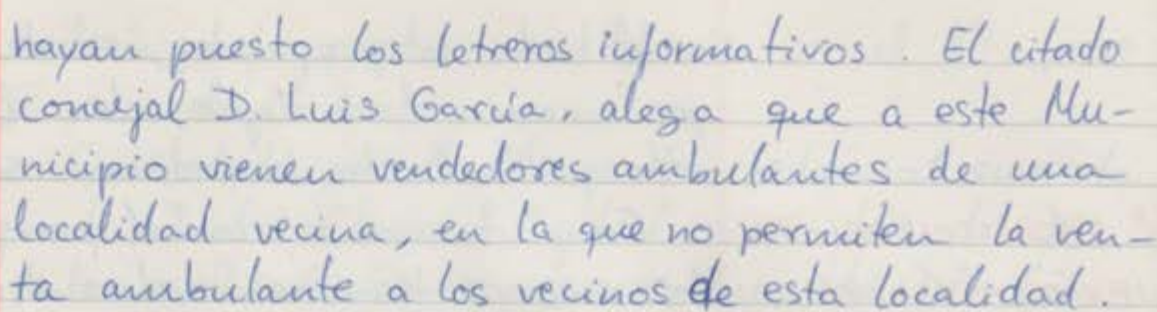 hayan puesto los letreros informativos. El citado
concejal D. Luis García, alega que a este Mu-
nicipio vienen vendedores ambulantes de una
localidad vecina, en la que no permiten la ven-
ta ambulante a los vecinos de esta localidad.